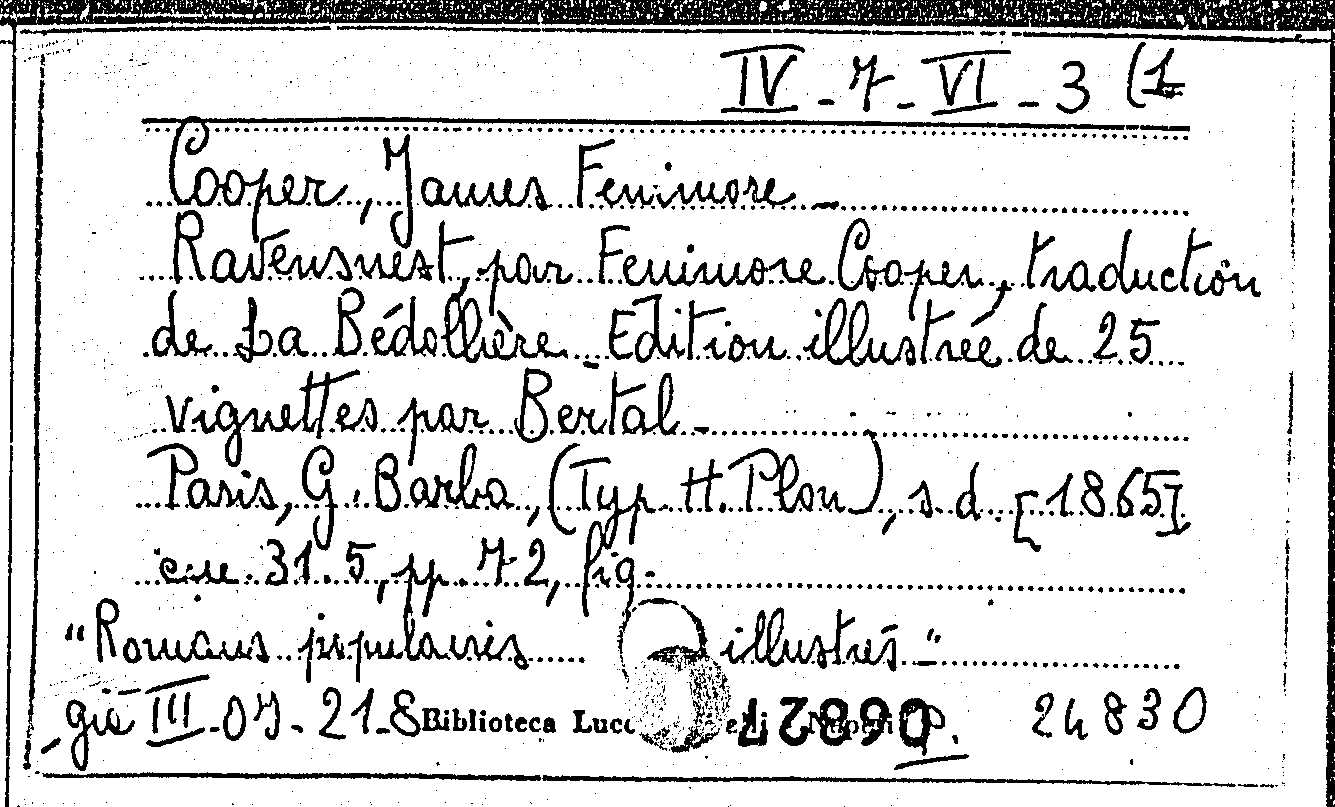 IV - 7 - VI - 3 (1
Cooper, James Fenimore -
Ravensnest, par Fenimore Cooper, traduction
de La Bédollière - Edition illustrée de 25
vignettes par Bertal -
Paris, G. Barba, (Typ. H. Plon), s. d. [1865]
cm. 31.5, pp. 72, fig.
"Romans populaires illustrés"
già III - 07 - 21 - 8 Biblioteca Lucc
068827 P. 24830